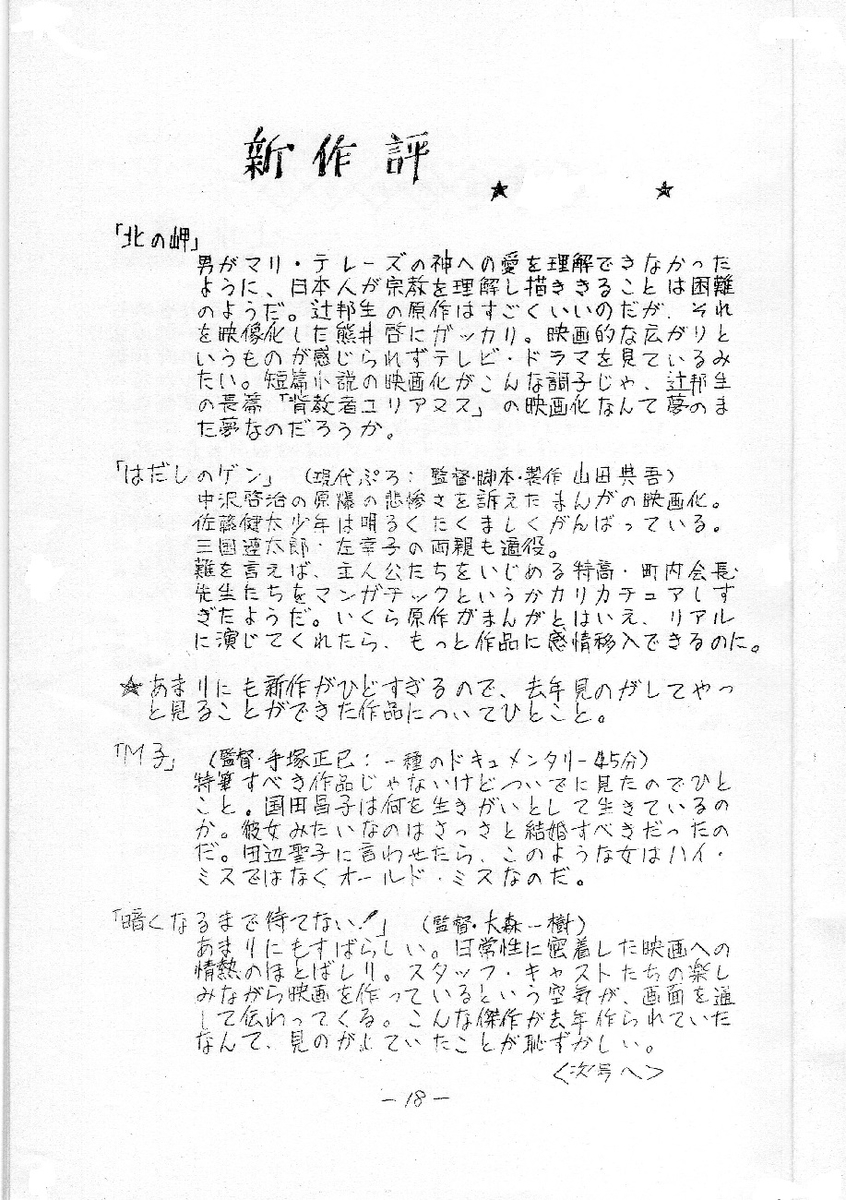 新作評
★ ★
「北の岬」
男がマリ・テレーズの神への愛を理解できなかった
ように、日本人が宗教を理解し描ききることは困難
のようだ。辻邦生の原作はすごくいいのだが、それ
を映像化した熊井啓にガッカリ。映画的な広がりと
いうものが感じられずテレビ・ドラマを見ているみ
たい。短篇小説の映画化がこんな調子じゃ、辻邦生
の長篇「背教者ユリアヌス」の映画化なんて夢のま
た夢なのだろうか。
「はだしのゲン」（現代ぷろ：監督・脚本・製作 山田典吾）
中沢啓治の原爆の悲惨さを訴えたまんがの映画化。
佐藤健太少年は明るくたくましくがんばっている。
三國連太郎・左幸子の両親も適役。
難を言えば、主人公たちをいじめる特高・町内会長・
先生たちをマンガチックというかカリカチュアしす
ぎたようだ。いくら原作がまんがとはいえ、リアル
に演じてくれたら、もっと作品に感情移入できるのに。
★あまりにも新作がひどすぎるので、去年見のがしてやっ
と見ることができた作品についてひとこと。
「M子」（監督・手塚正己：一種のドキュメンタリー45分）
特筆すべき作品じゃないけどついでに見たのでひと
こと。国田昌子は何を生きがいとして生きているの
か。彼女みたいなのはさっさと結婚すべきだったの
だ。田辺聖子に言わせたら、このような女はハイ・
ミスではなくオールド・ミスなのだ。
「暗くなるまで待てない！」（監督・大森一樹）
あまりにもすばらしい。日常性に密着した映画への
情熱のほとばしり。スタッフ・キャストたちの楽し
みながら映画を作っているという空気が、画面を通
して伝わってくる。こんな傑作が去年作られていた
なんて、見のがしていたことが恥ずかしい。
＜次号へ＞
－18－